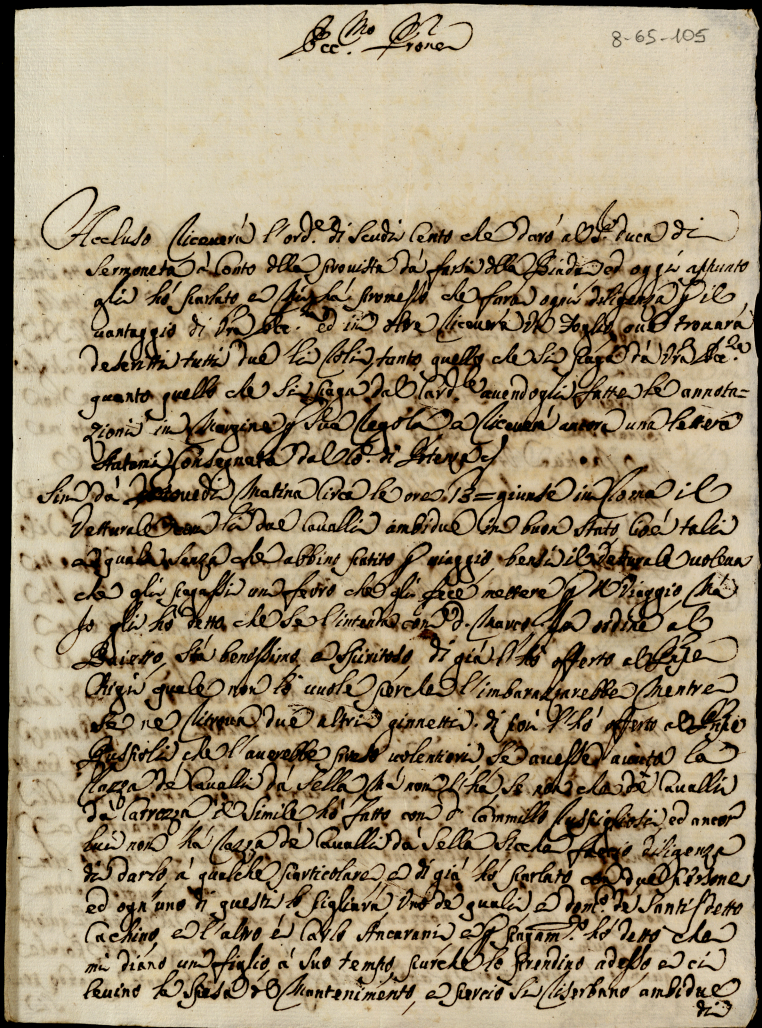 8-65-105
Ecc.mo Sig.r Prone
Accluso riceverà l'ord.e di Scudi Cento che darò al S.r duca di
Sermoneta à Conto della provista dà farsi della Biada ed oggi appunto
gli hò parlato e mi hà promesso che farà ogni diligenza p il
vantaggio di Vra Ecc.za ed in oltre riceverà Un foglio ove trovarà
descritti tutti due li Colli, tanto quello che Si paga dà Vra Ecc.za
quanto quello che Si paga dal Card.le avendogli fatte le annota=
zioni in Margine p Sua regola e riceverà ancora una lettera
Statami Consegnata dal
Sin dà Giovedì Matina Circa le ore 13= giunse in Roma il
Vetturale con li due Cavalli ambidue in buon Stato Cioè tali
e quale senza che abbino patito p viaggio bensì il Vetturale voleva
che gli pagassi un ferro che gli fece mettere p il Viaggio Mà
Io gli hò detto che Se l'intenda con d. Marco In ordine al
Baietto, Stà benissimo e Spiritoso di già l'hò offerto al Pnpe
Chigi quale non lo vuole perche l'imbarazzarebbe Mentre
Se ne ritrova due altri ginnetti di più l'hò offerto al Pnpe
Ruspoli che l'averebbe preso volentieri Se avesse avuta la
razza de Cavalli dà Sella Mà non l'hà Se non che de Cavalli
dà Carrozza il Simile hò fatto con d. Cammillo Ruspigliosi ed ancor
lui non hà razza de Cavalli dà Sella Sicche faccio diligenza
di darlo à qualche particolare e di già hò parlato con due Persone
ed ogn'uno di questi lo pigliarà Uno de quali è dom.co de Santis detto
Cachino, e l'altro è Carlo Ancarani e p pagam.to hò detto che
mi diano un figlio à suo tempo purche lo prendino adesso e ci
levino le Spese del Mantenimento, e perciò Si riserbano ambidue
di